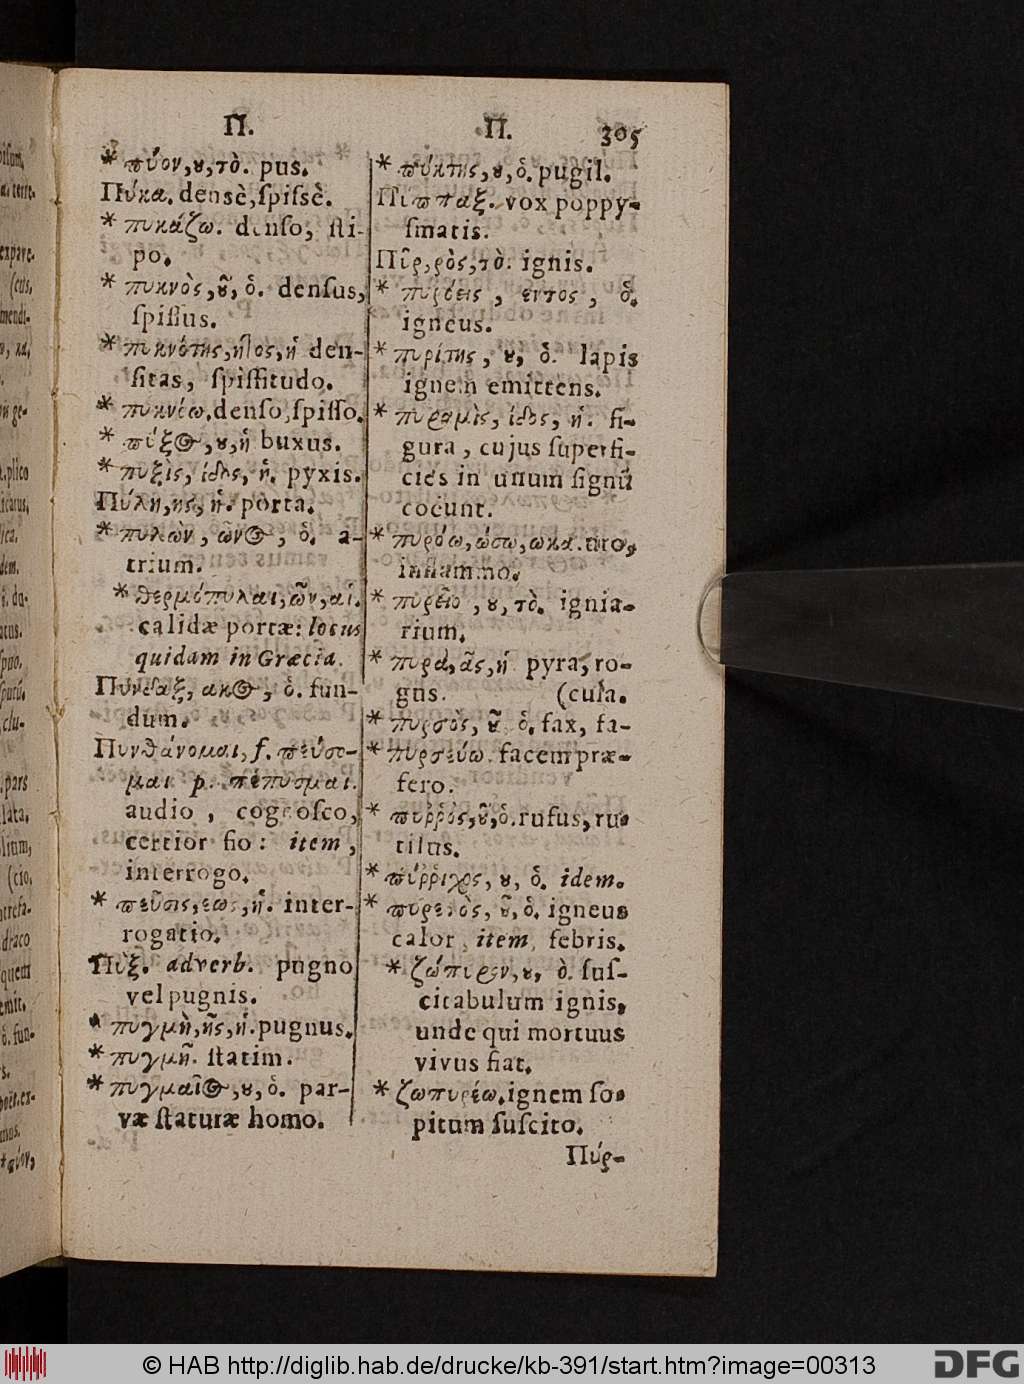 Π.
* πύον, ȣ, τὸ. pus.
Πύκα. densè, ſpiſsè.
* πυκάζω. denſo, ſti-
po.
* πυκνὸς, ȣ̃, ὁ. denſus,
ſpiſſus.
* πυκνότης, ητος, ἡ den-
ſitas, ſpiſſitudo.
* πυκνέω. denſo, ſpiſſo.
* πύξος, ȣ, ἡ buxus.
* πυξὶς, ίδος, ἡ. pyxis.
Πύλη, ης, ἡ. porta.
* πυλὼν, ῶνος, ὁ. a-
trium.
* θερμόπυλαι, ῶν, αἱ.
calidæ portæ: locus
quidam in Græcia.
Πύνδαξ, ακος, ὁ. fun-
dum.
Πυνθάνομαι, f. πεύσο-
μαι p. πέπυσμαι.
audio, cognoſco,
certior fio: item,
interrogo.
* πεῦσις, εως, ἡ. inter-
rogatio.
Πὺξ. adverb. pugno
vel pugnis.
* πυγμὴ, ῆς, ἡ. pugnus.
* πυγμῆ. ſtatim.
* πυγμαῖος, ȣ, ὁ. par-
væ ſtaturæ homo.
Π. 305
* πύκτης, ȣ, ὁ. pugil.
Πύππαξ. vox poppy-
ſmatis.
Πῦρ, ρὸς, τὸ. ignis.
* πυρόεις, εντος, ὁ.
igneus.
* πυρίτης, ȣ, ὁ. lapis
ignem emittens.
* πυραμὶς, ίδος, ἡ. fi-
gura, cujus ſuperfi-
cies in unum ſignũ
coëunt.
* πυρόω, ώσω, ωκα. uro,
inflammo.
* πυρεῖο, ȣ, τὸ. ignia-
rium.
* πυρὰ, ᾶς, ἡ pyra, ro-
gus. (cula.
* πυρσὸς, ȣ̃ ὁ. fax, fa-
* πυρσεύω. facem præ-
fero.
* πυῤῥὸς, ȣ̃, ὁ. rufus, ru-
tilus.
* πύῤῥιχος, ȣ, ὁ. idem.
* πυρετὸς, ȣ̃, ὁ. igneus
calor, item, febris.
* ζώπυρον, ȣ, ὸ. ſuſ-
citabulum ignis,
unde qui mortuus
vivus fiat.
* ζωπυρέω. ignem ſo-
pitum ſuſcito.
Πύρ-
© HAB http://diglib.hab.de/drucke/kb-391/start.htm?image=00313
DFG